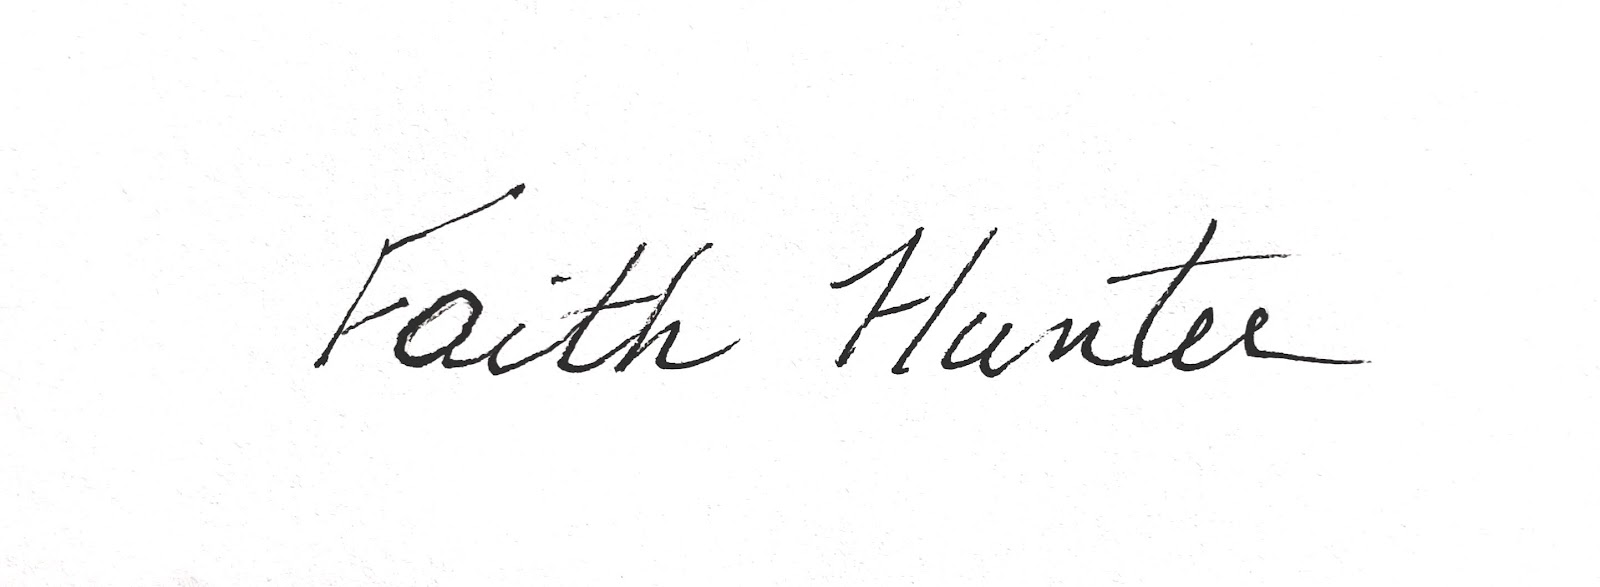 Faith Hunter